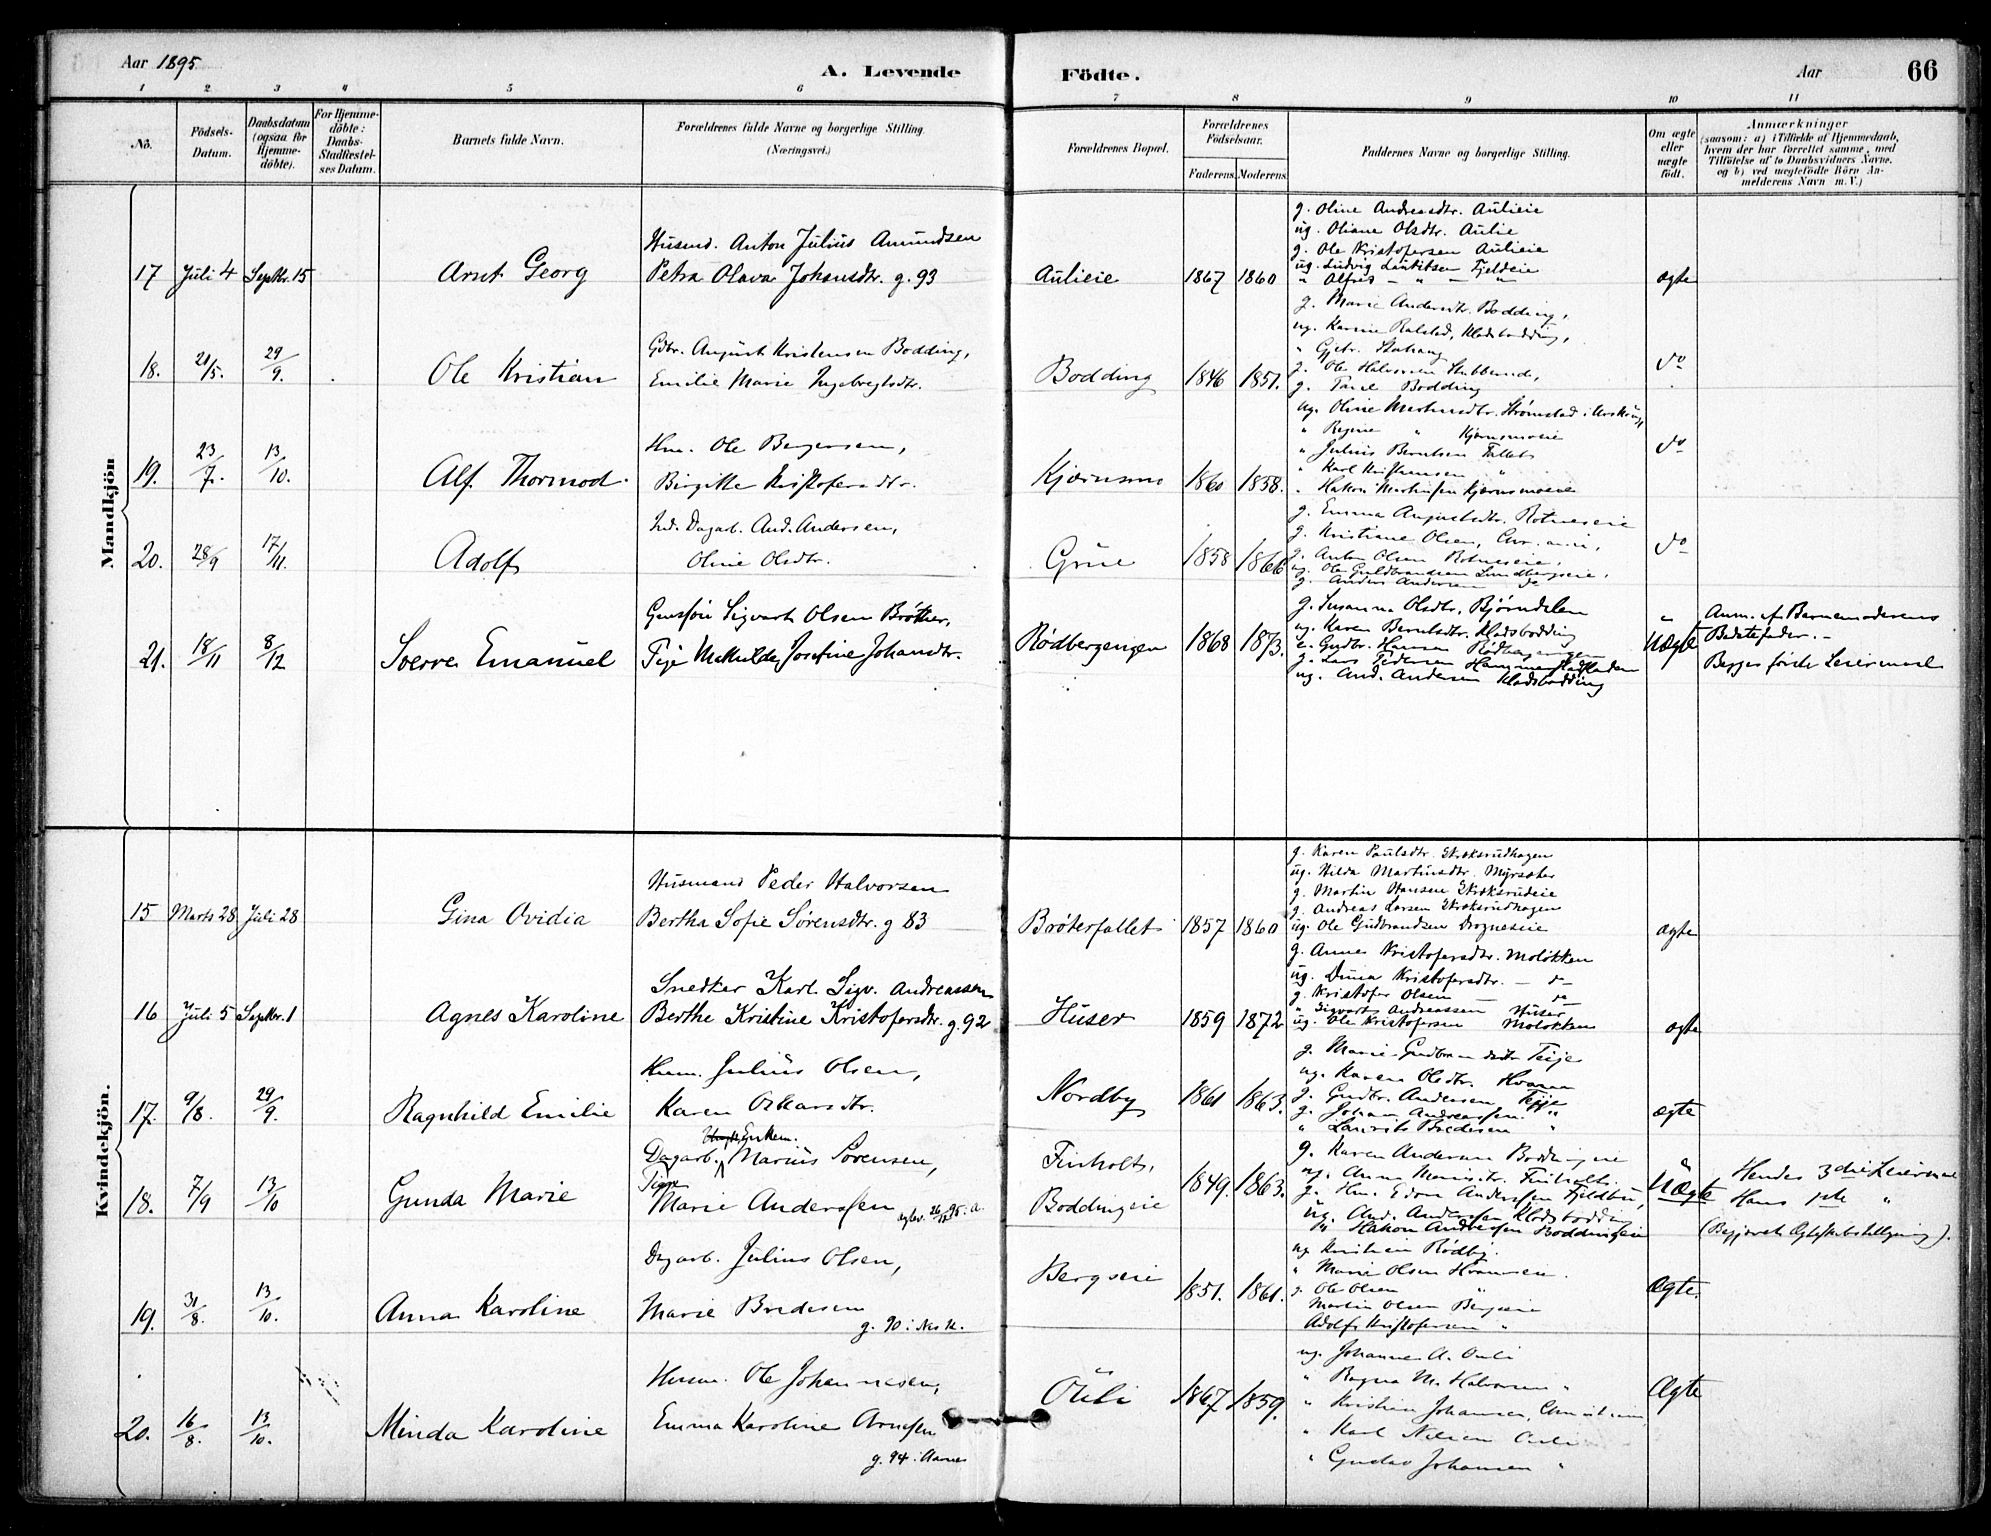 Aar 1895
A. Levende Födte.
Aar
66
1 2 3 4 5 6 7 8 9 10 11
Nö.
Födsels-Datum.
Daabsdatum (ogsaa for Hjemme-döbte).
For Hjemme-döbte: Daabs-Stadfæstel-ses Datum.
Barnets fulde Navn.
Forældrenes fulde Navne og borgerlige Stilling.
(Næringsvei.)
Forældrenes Bopæl.
Forældrenes Födselsaar.
Faderens. Moderens.
Faddernes Navne og borgerlige Stilling.
Om ægte eller uægte födt.
Anmærkninger
(saasom: a) i Tilfælde af Hjemmedaab,
hvem der har forrettet samme, med
Tilföielse af to Daabsvidners Navne,
og b) ved uægtefödte Börn An-
melderens Navn m. V.)
Mandkjön
17 Juli 4 Septbr. 15 Arnt Georg
Husmd. Anton Julius Amundsen
Petra Olava Johansdtr. g. 93
Aulieie 1867 1860
g. Oline Andreasdtr. Aulieie
ug. Oliane Olsdtr. Aulie
g. Ole Kristofersen Aulieie
ug. Ludvig Lauritsen Fjeldeie
" Alfred - " - "
ægte
18. 21/5. 29/9. Ole Kristian
Gdbr. August Kristensen Bodding,
Emilie Marie Ingebregtsdtr.
Bodding 1846 1851.
g. Marie Andersdtr. Bodding,
ug. Karine Ralstad, Kladsbodding,
g. Ole Halvorsen Stubberud,
g. Paul Bodding
do
19. 23/7. 13/10. Alf Thormod.
Hm. Ole Bergersen,
Birgitte Kristofersdtr.
Kjærnsmo 1860 1858.
ug. Oline Martinsdtr. Strømstad i Urskoug
" Regine " Kjærnsmoeie
" Julius Berntsen Fallet
" Karl Kristiansen "
" Hakon Martinsen Kjærnsmoeie
do
20. 28/9 17/11. Adolf
Ind. Dagarb. And. Andersen,
Oline Olsdtr.
Grue 1858 1866
g. Emma Augustsdtr. Rotneseie
g. Kristiane Olsen,
g. Anton Olsen Rotneseie,
ug. Ole Guldbrandsen Lundbergseie,
g. Anders Andersen do
do
21. 18/11 8/12 Sverre Emanuel
Gaardsøn Sigvart Olsen Brøther,
Pige Mathilde Josefine Johansdtr.
Rødbergengen 1868 1873.
g. Susanna Olsdtr. Bjørndalen
ug. Karen Berntsdtr. Kladsbodding
g. Gudbr. Hansen Rødbergengen
g. Lars Pedersen Hammerstadfladen
ug. And. Andersen Kladsbodding
Uægte
Anm. af Barnemoderens
Bedstefader. -
Begges første Leiermaal
Kvindekjön.
15 Marts 28 Juli 28 Gina Ovidia
Husmand Peder Halvorsen
Bertha Sofie Sørensdtr. g 83
Brøterfallet 1857 1860
g. Karen Paulsdtr. Skoksrudhagen
ug. Hilda Martinsdtr. Myrsæter
g. Martin Hansen Skoksrudeie
g. Andreas Larsen Skoksrudhagen
ug. Ole Gudbrandsen Drogneseie
ægte
16 Juli 5 Septbr. 1 Agnes Karoline
Snedker Karl Sigv. Andreassen
Berthe Kristine Kristofersdtr. g. 92
Huser 1859 1872
g. Anne Kristofersdtr. Moløkken
ug. Dina Kristofersdtr. - do -
g. Kristofer Olsen - do
" Sigvart Andreassen Huser
ug. Ole Kristofersen Moløkken
ægte
17. 9/8. 29/9. Ragnhild Emilie
Husm. Julius Olsen,
Karen Oskarsdtr.
Nordby 1861 1863.
g. Marie Gudbrandsdtr Teije
ug. Karen Olsdtr. Hvaman
g. Gudbr. Andersen Teije
g. Johan Andreassen "
" Laurits Bredesen "
ægte
18. 7/9 13/10 Gunda Marie
Dagarb. Enkem. Marius Sørensen,
Pige Marie Anderssen
Finholt,
Boddingeie 1849. 1863.
g. Karen Andersen Boddingeie
ug. Anna Finholt.
g. Hm. Edvan Anderssen Fjeldbu,
ug. And. Anderssen Kladsbodding
" Hakon Andreassen Boddingeie
Uægte
Hendes 3die Leiermaal
Hans 1ste "
(Begjæret Ægteskabslysning).
19. 31/8. 13/10. Anna Karoline
Dagarb. Julius Olsen,
Marie Bredesen
g. 90 i Nes K.
Bergseie 1851. 1861.
ug Rødby.
" Marie Olsen
g. Ole Olsen "
Martin Olsen Bergseie
Adolf Kristofersen "
Ægte.
20. 16/8. 13/10. Minda Karoline
Husm. Ole Johannesen,
Emma Karoline Arnesen
g. 94 i Aarnes
Ouli 1867 1859.
ug. Johanne A. Ouli
" Ragna M. Halvorsen "
" Kristian Johansen,
" Karl Nilsen Ouli
" Gustav Johansen "
Ægte